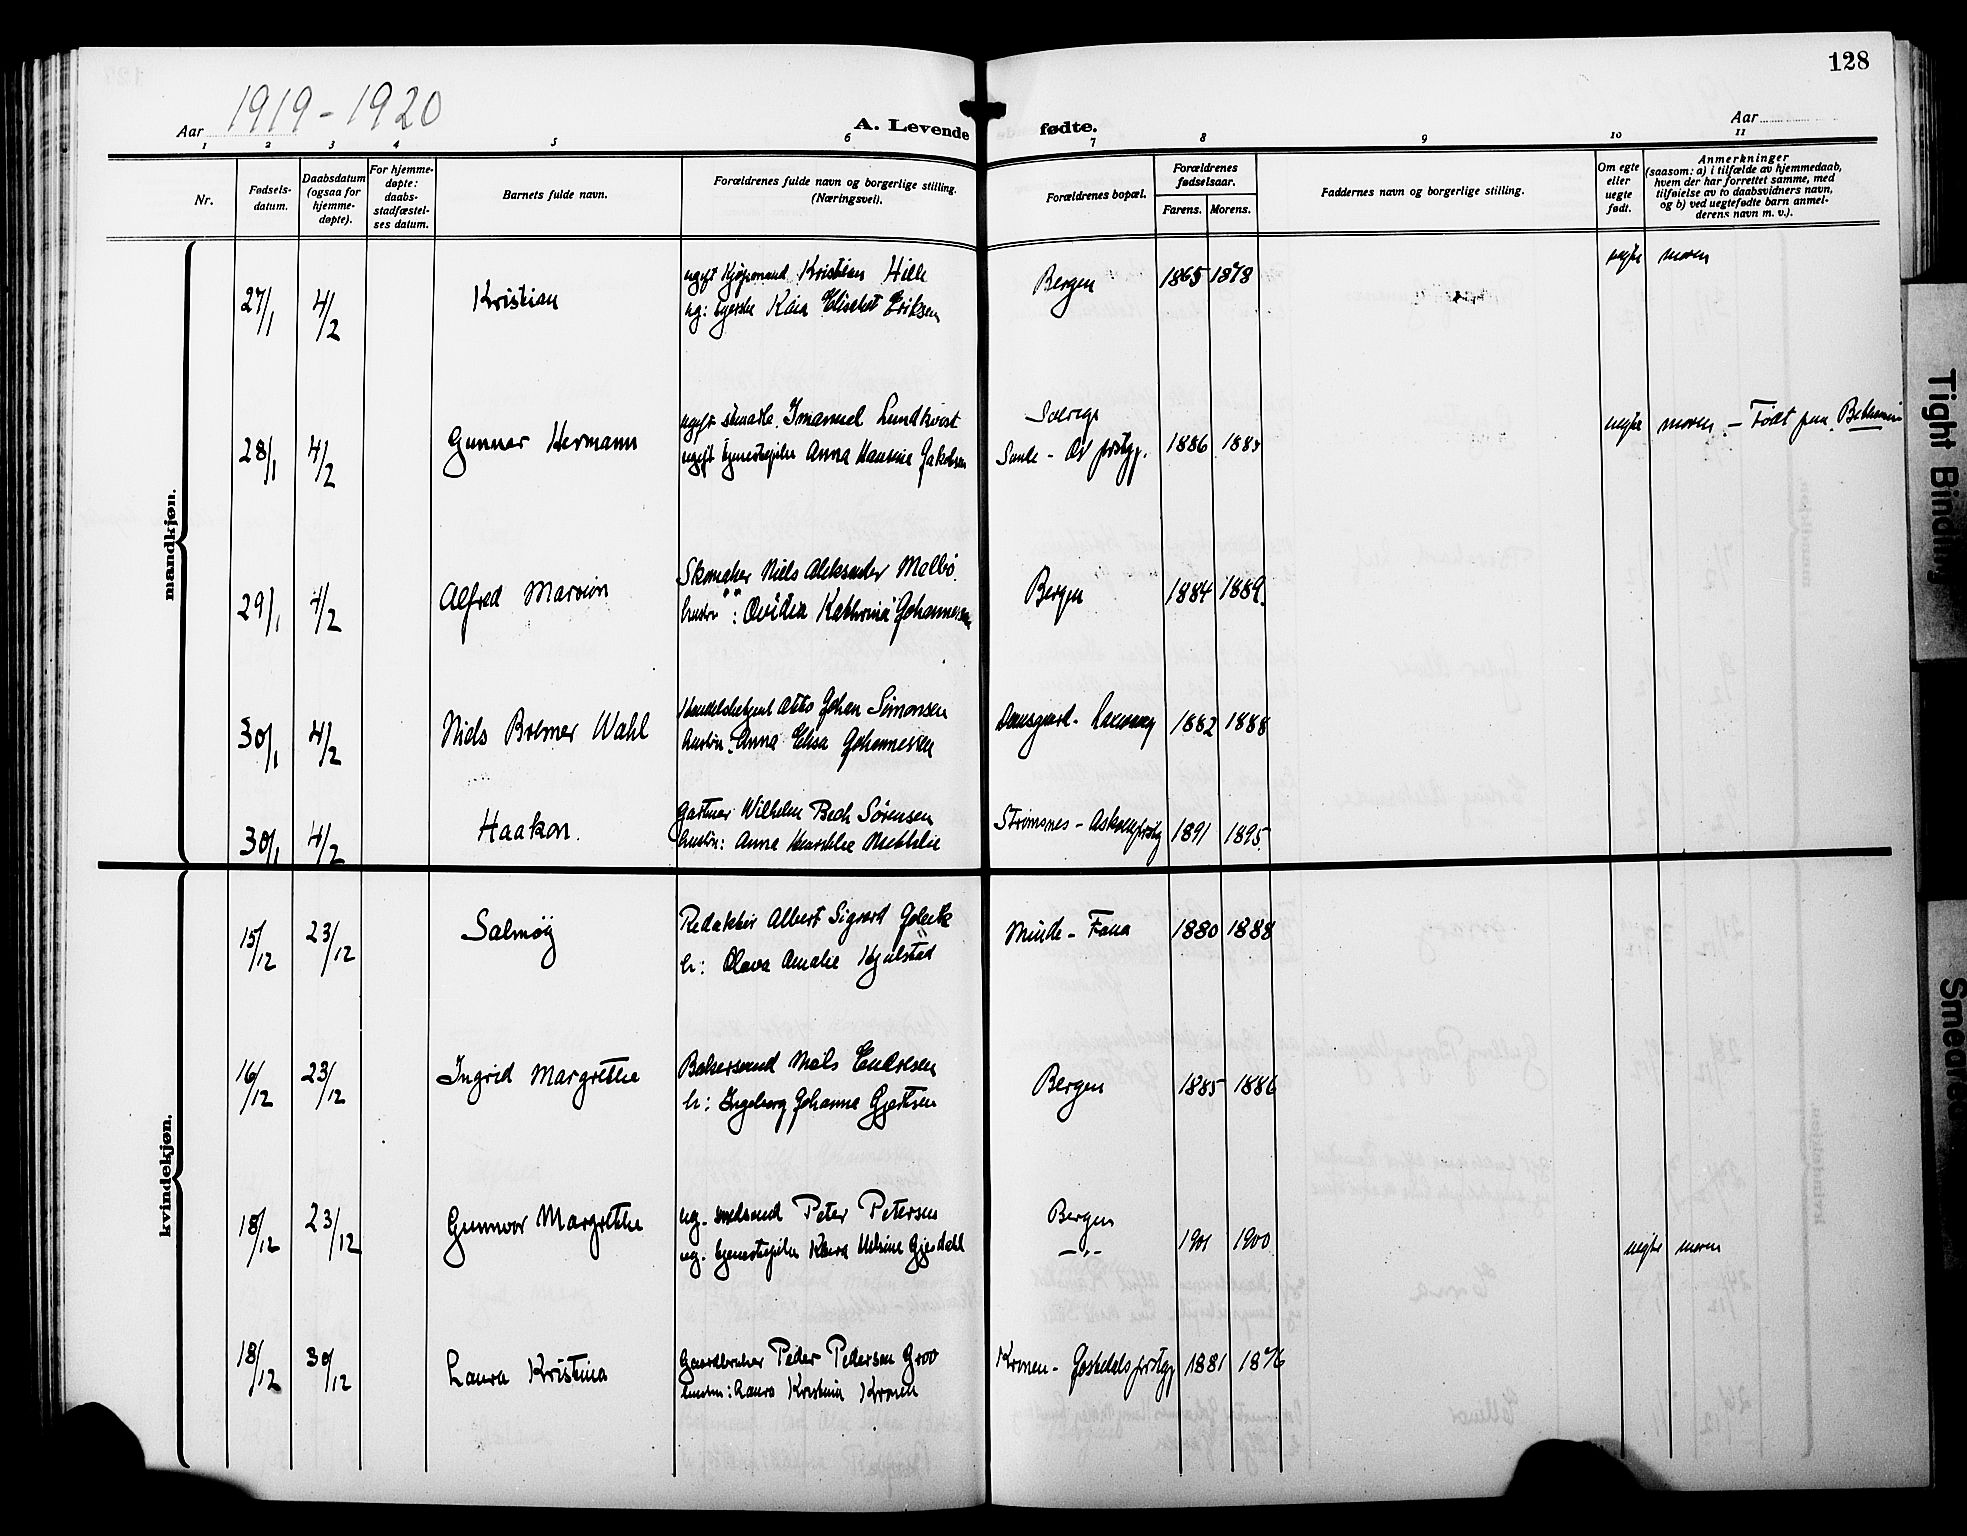 128
Aar 1919-1920
A. Levende fødte.
Aar
1 2 3 4 5 6 7 8 9 10 11
Nr.
Fødsels-
datum.
Daabsdatum
(ogsaa for
hjemme-
døpte).
For hjemme-
døpte:
daabs-
stadfæstel-
ses datum.
Barnets fulde navn.
Forældrenes fulde navn og borgerlige stilling.
(Næringsvei).
Forældrenes bopæl.
Forældrenes
fødselsaar.
Farens. Morens.
Faddernes navn og borgerlige stilling.
Om egte
eller
uegte
født.
Anmerkninger
(saasom: a) i tilfælde av hjemmedaab,
hvem der har forrettet samme, med
tilføielse av to daabsvidners navn,
og b) ved uegtefødte barn anmel-
derens navn m. v.).
mandkjøn.
27/1 4/2 Kristian
ugift Kjøpmand Kristian Hille
ug: Kaia Elisabet Eriksen
Bergen 1865 1878 uegte moren
28/1 4/2 Gunnar Hermann
ugift Imanuel Lundkvist
ugift tjenestepike Anna Hansine Jakobsen
Sverige
Os prstgj. 1886 uegte moren - Født paa
29/1 4/2 Alfred
Skomaker Niels Aleksander Melbø
hustru: Ovidia Kathrine Johannessen
Bergen 1884 1889.
30/1 4/2 Niels Wahl
Otto Johan Simonsen
hustru: Anna Elisa Johannessen
1882 1888
30/1 4/2 Haakon.
Gartner Wilhelm Bech Sørensen
hustru: Anna
Strømsnes - Askøens prstgj 1891 1895.
kvindekjøn.
15/12 23/12 Salmøy
Redaktør Albert Sigvard
h: Olava Amalie
Minde - Fana 1880 1888
16/12 23/12 Ingrid Margrethe
Niels Endresen
h: Ingeborg Johanna Gjertsen
Bergen 1885 1886
18/12 23/12 Gunnvor Margrethe
ug. Peter Petersen
ug. tjenestepike Gjesdahl
Bergen
-„- 1901 1900 uegte moren
18/12 30/12 Laura Kristina
Gaardbruker Peder Pedersen Groo
hustru: Laura Kristina Kronen
Kronen - Jostedals prstgj 1881 1876
Tight Binding
Smeared